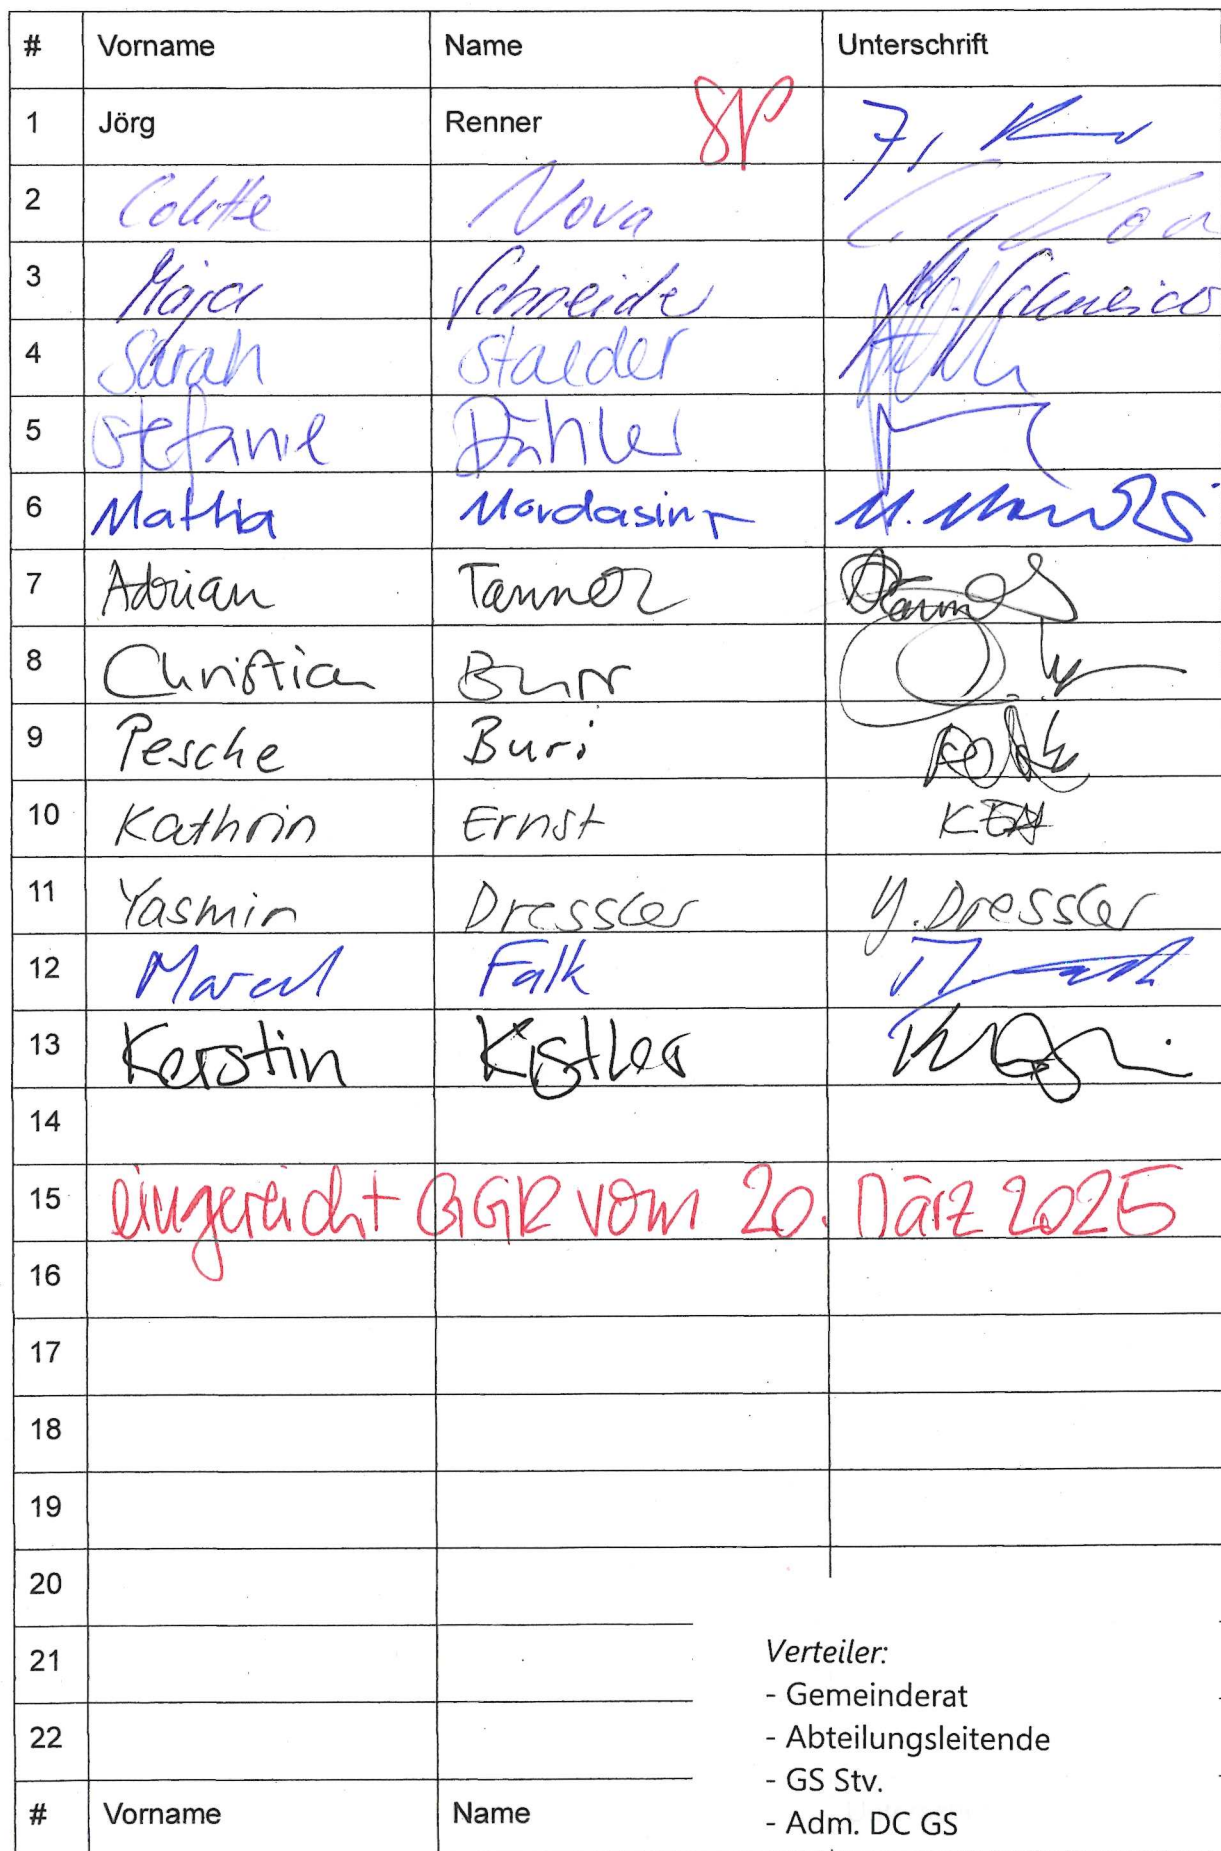 # Vorname Name Unterschrift
1 Jörg Renner SP
2 Colette Nova C. Nova
3 Maja Schneider M. Schneider
4 Sarah Staeder
5 Stefanie Dähler
6 Mattia Mordasini
7 Adrian Tanner
8 Christian Burr
9 Pesche Buri
10 Kathrin Ernst
11 Yasmin Dressler Y. Dressler
12 Marcel Falk
13 Kerstin Kistler
14
15 eingereicht GGR vom 20. März 2025
16
17
18
19
20
21
22
# Vorname Name
Verteiler:
- Gemeinderat
- Abteilungsleitende
- GS Stv.
- Adm. DC GS